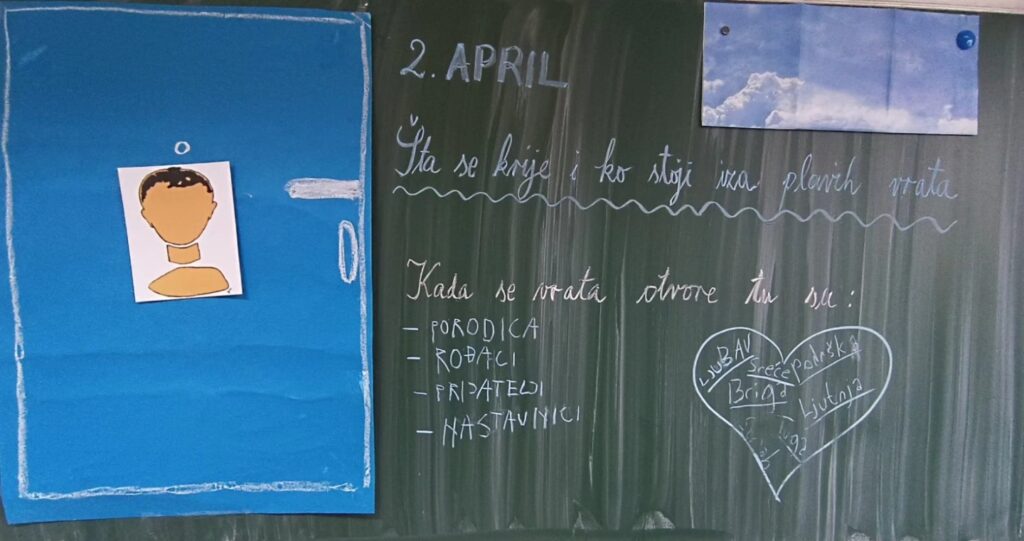 2. APRIL
Šta se krije i ko stoji iza plavih vrata
Kada se vrata otvore tu su:
- PORODICA
- ROĐACI
- PRIJATELJI
- NASTAVNICI
LJUBAV
Sreće
Podrška
Briga
Ljutnja
Tuga